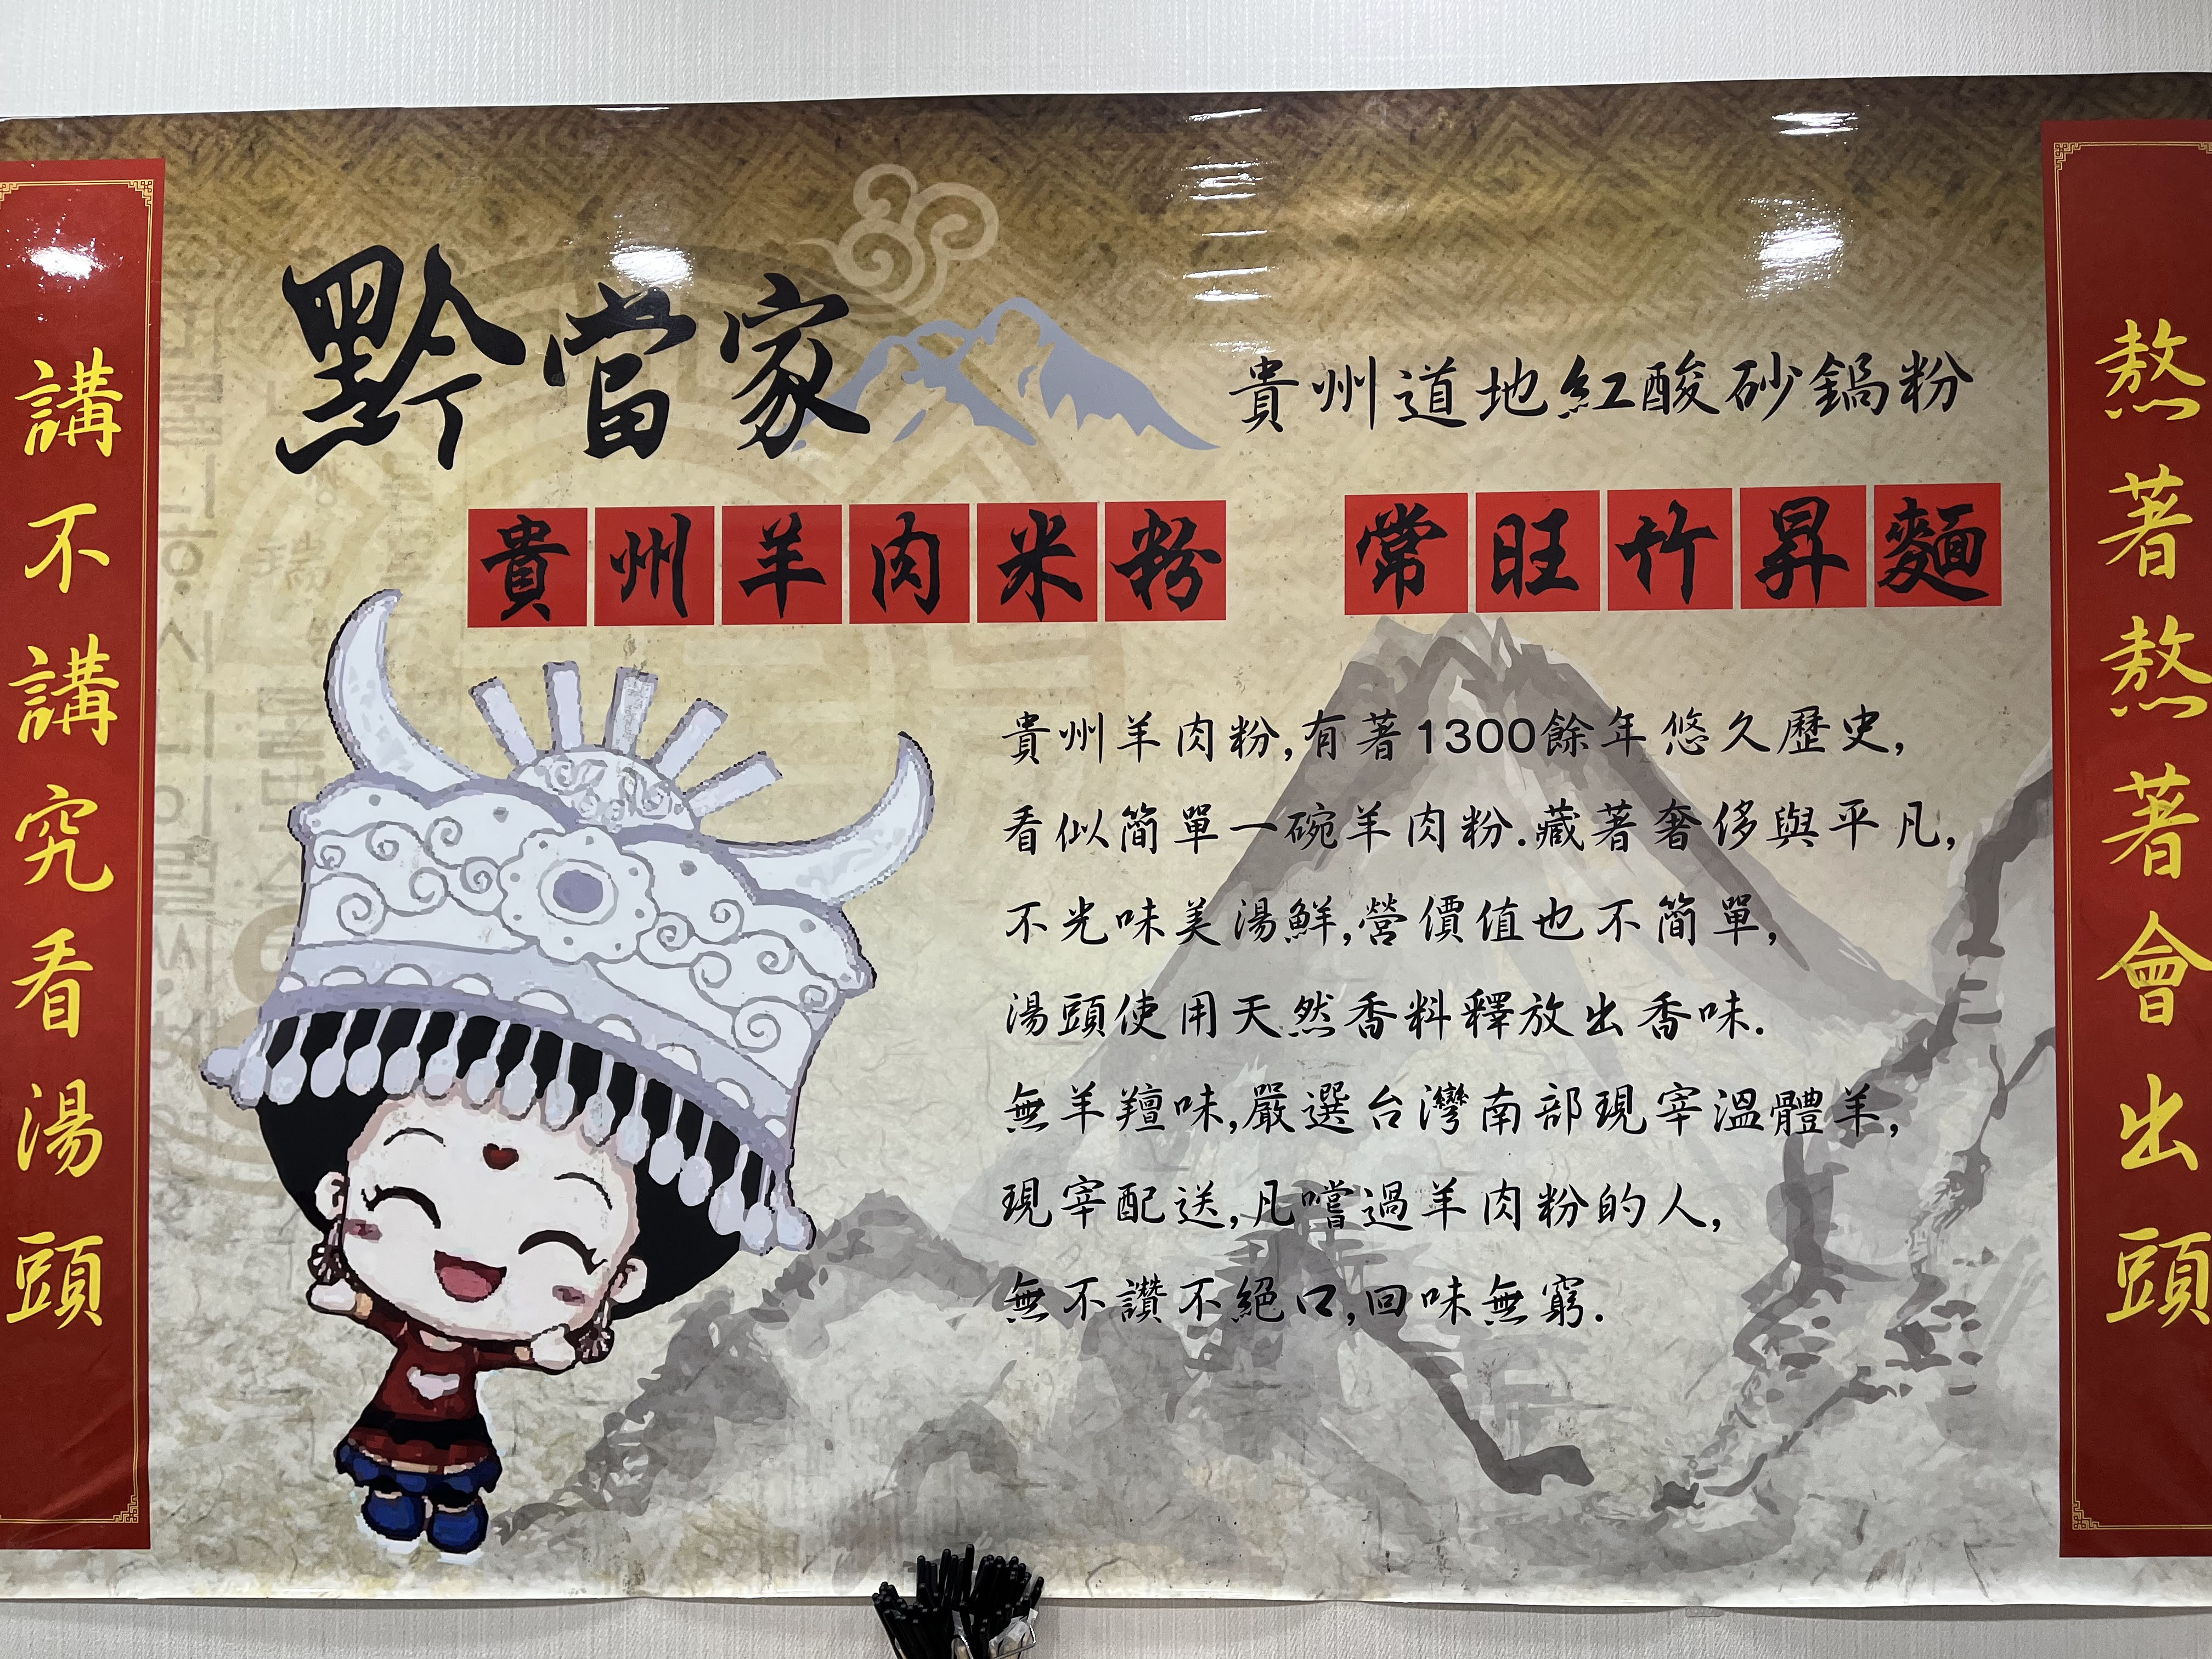 黔當家
貴州道地紅酸砂鍋粉
貴州羊肉米粉
常旺竹昇麵
講不講究看湯頭
熬著熬著會出頭
貴州羊肉粉,有著1300餘年悠久歷史,
看似簡單一碗羊肉粉.藏著奢侈與平凡,
不光味美湯鮮,營價值也不簡單,
湯頭使用天然香料釋放出香味.
無羊羶味,嚴選台灣南部現宰溫體羊,
現宰配送,凡嚐過羊肉粉的人,
無不讚不絕口,回味無窮.